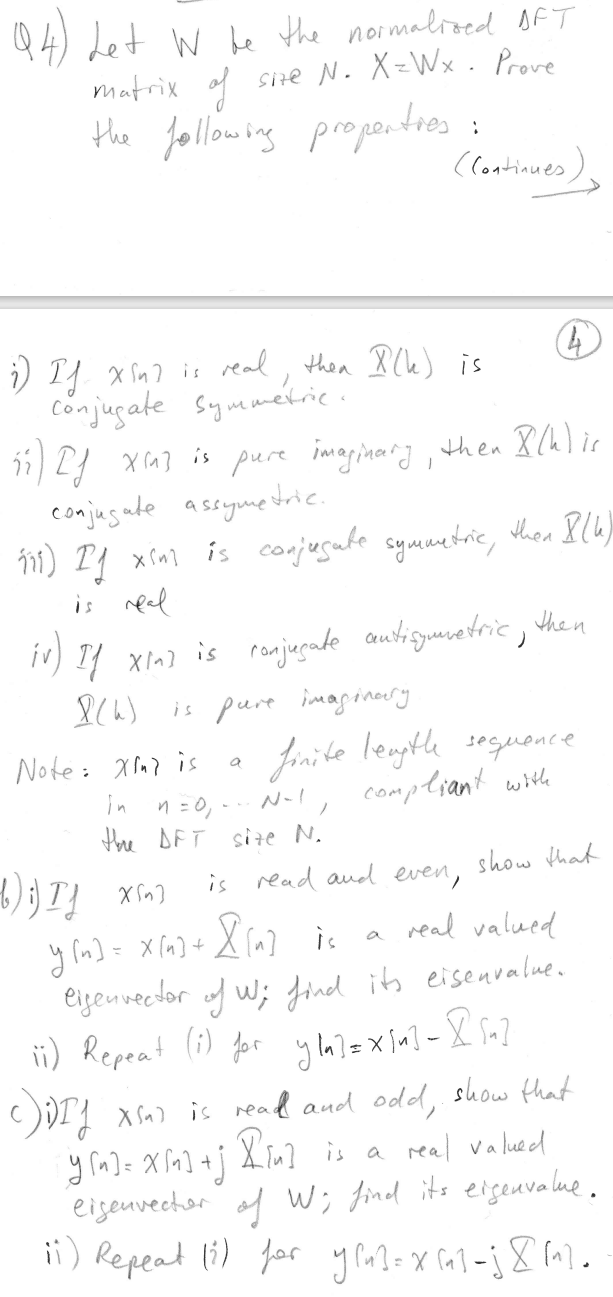 Q4) Let W be the normalized DFT
matrix of size N. X=Wx. Prove
the following properties :
(Continues)
4
i) If x[n] is real, then X(k) is
conjugate symmetric.
ii) If x[n] is pure imaginary, then X(k) is
conjugate assymetric.
iii) If x[n] is conjugate symmetric, then X(k)
is real
iv) If x[n] is conjugate antisymmetric, then
X(k) is pure imaginary
Note: x[n] is a finite length sequence
in n=0, ... N-1, compliant with
the DFT size N.
b) i) If x[n] is read and even, show that
y[n] = x[n] + X[n] is a real valued
eigenvector of W; find its eigenvalue.
ii) Repeat (i) for y[n] = x[n] - X[n]
c) i) If x[n] is real and odd, show that
y[n] = x[n] + j X[n] is a real valued
eigenvector of W; find its eigenvalue.
ii) Repeat (i) for y[n] = x[n] - j X[n].